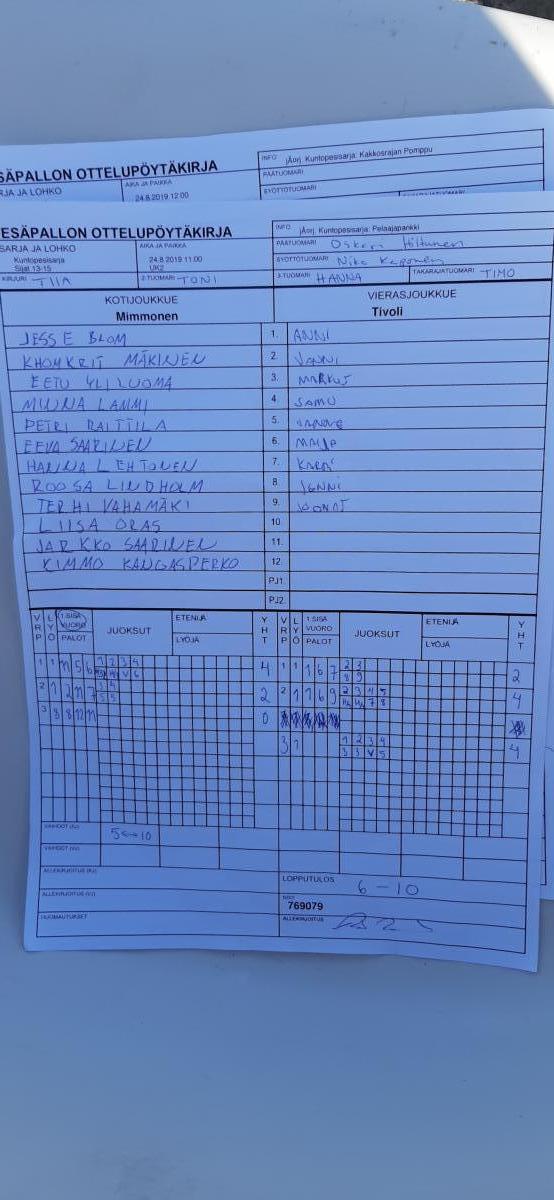 ESÄPALLON OTTELUPÖYTÄKIRJA
RJA JA LOHKO
AIKA JA PAIKKA
24.8.2019 12:00
INFO jÄorj. Kuntopesisarja: Kakkosrajan Pomppu
PÄÄTUOMARI
SYÖTTÖTUOMARI
ESÄPALLON OTTELUPÖYTÄKIRJA
SARJA JA LOHKO
Kuntopesisarja
Sijat 13-15
AIKA JA PAIKKA
24.8.2019 11:00
UK2
INFO jÄorj. Kuntopesisarja: Pelaajapankki
PÄÄTUOMARI Oskari Hiltunen
SYÖTTÖTUOMARI Niko Keponen
KIRJURI TIIA
2-TUOMARI TONI
3-TUOMARI HANNA
TAKARAJATUOMARI TIMO
KOTIJOUKKUE
Mimmonen
VIERASJOUKKUE
Tivoli
JESSE BLOM 1. ANNI
KHOMKRIT MÄKINEN 2. JANNI
EETU YLILUOMA 3. MARKUS
MINNA LAMMI 4. SAMU
PETRI RAITTILA 5.
EEVA SAARINEN 6. MAIJA
HANNA LEHTONEN 7.
ROOSA LINDHOLM 8. JENNI
TERHI VAHAMÄKI 9. JOONAS
LIISA ORAS 10.
JARKKO SAARINEN 11.
KIMMO KANGASPERKO 12.
PJ1.
PJ2.
VRP LYÖ 1.SISÄ VUORO PALOT JUOKSUT ETENIJÄ LYÖJÄ YHT VRP LYÖ 1.SISÄ VUORO PALOT JUOKSUT ETENIJÄ LYÖJÄ YHT
1 1 11 5 6 1 2 3 4 4 1 1 1 6 7 2 3 2
8 9
2 1 2 11 7 2 2 1 1 6 9 2 3 4 5 4
5 5 7 8
3 8 8 12 11 0
3 1 1 2 3 4 4
3 3 V 5
VAIHDOT (KJ) 5<->10
VAIHDOT (VJ)
ALLEKIRJOITUS (KJ)
ALLEKIRJOITUS (VJ)
HUOMAUTUKSET
LOPPUTULOS 6 - 10
NRO
769079
ALLEKIRJOITUS